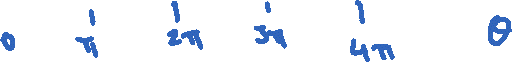 0 π 2π 3π 4π θ